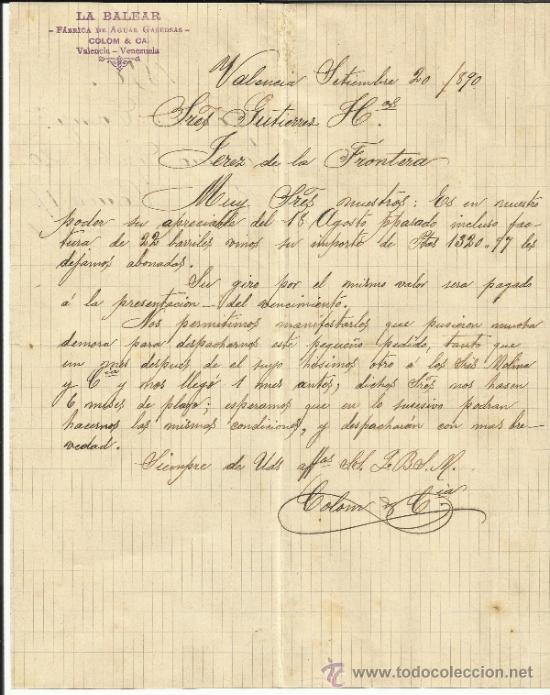 LA BALEAR
- FÁBRICA DE AGUAS GASEOSAS -
COLOM & CA.
Valencia - Venezuela
Valencia Setiembre 20 /890
Sres Gutierres Hos
Jerez de la Frontera
Muy Sres nuestros: Es en nuestro
poder su apreciable del 18 Agosto ppasado incluso fac-
tura de 22 barriles vinos su importe de Ptas 1320.77 les
dejamos abonadas.
Su giro por el mismo valor sera pagado
á la presentacion - del vencimiento.
Nos permitimos manifestarles que pusieron mucha
demora para despacharnos este pequeño pedido, tanto que
un mes despues de el suyo hisimos otro á los Sres Molina
y Cia y nos llegó 1 mes antes; dichos Sres nos hasen
6 meses de plazo; esperamos que en lo sucesivo podran
hacernos las mismas condiciones, y despacharán con mas bre-
vedad.
Siempre de Uds affos SS. Q B S. M.
Colom y Cia
todocoleccion
www.todocoleccion.net